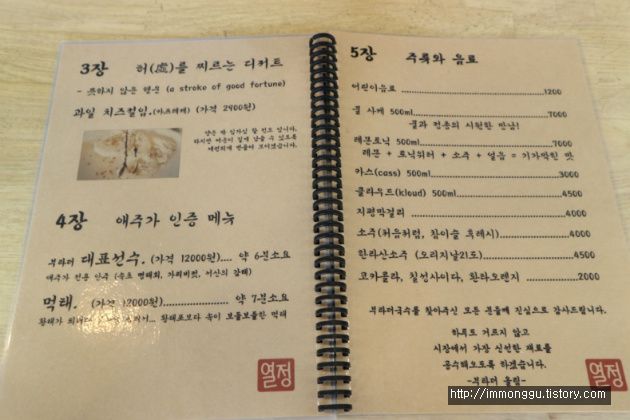 3장 허(虛)를 찌르는 디저트
- 뜻하지 않은 행운 (a stroke of good fortune)
과일 치즈컬입.(아즈케케) (가격 2900원)
4장 애주가 인증 메뉴
부라더 대표선수. (가격 12000원).... 약 6분소요
애주가 전용 안주 (속초 명태회, 가리비젓, 서산의 감태)
먹태. (가격 12000원)........................ 약 7분소요
황태포보다 속이 보들보들한 먹태
열정
5장 주룩와 음료
어린이음료 ........................ 1200
꿀 사케 500ml........................7000
꿀과 전통의 시원한 만남!
레몬토닉 500ml........................7000
레몬 + 토닉워터 + 소주 + 얼음 = 기가막힌 맛
카스(cass) 500ml........................3000
클라우드(kloud) 500ml........................4500
지평막걸리 ........................ 4000
소주(처음처럼, 참이슬 후레시)........................4000
한라산소주 (오리지날21도) ........................4500
코카콜라, 칠성사이다, 환타오렌지 ........................2000
부라더국수를 찾아주신 모든 분들께 진심으로 감사드립니다.
하루도 거르지 않고
시장에서 가장 신선한 재료를
공수해오도록 하겠습니다.
-부라더 올림-
열정
http://immonggu.tistory.com